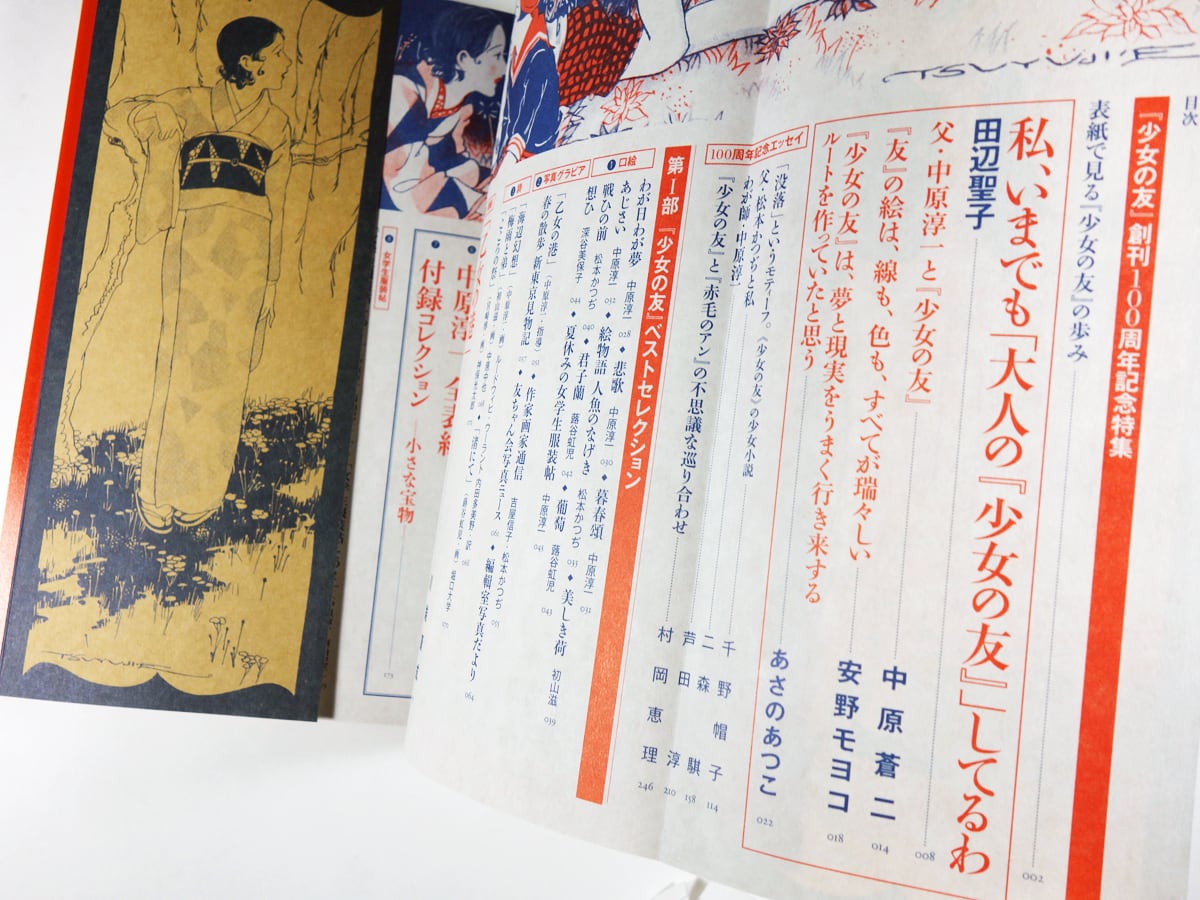 目次
『少女の友』創刊100周年記念特集
表紙で見る『少女の友』の歩み
002
私、いまでも「大人の『少女の友』」してるわ
田辺聖子
008
父・中原淳一と『少女の友』
中原蒼二
014
『友』の絵は、線も、色も、すべてが瑞々しい
安野モヨコ
018
『少女の友』は、夢と現実をうまく行き来する
ルートを作っていたと思う
あさのあつこ
022
100周年記念エッセイ
「没落」というモティーフ。《少女の友》の少女小説
千野帽子
114
父・松本かつぢと私
二森騏
158
わが師・中原淳一
芦田淳
210
『少女の友』と『赤毛のアン』の不思議な巡り合わせ
村岡恵理
246
第Ⅰ部 『少女の友』ベストセレクション
1 口絵
わが日わが夢 中原淳一 028 ◆ 悲歌 中原淳一 030 ◆ 暮春頌 中原淳一 031
あじさい 中原淳一 032 ◆ 絵物語 人魚のなげき 松本かつぢ 033 ◆ 美しき荷 初山滋 039
戦ひの前 松本かつぢ 040 ◆ 君子蘭 蕗谷虹児 042 ◆ 葡萄 蕗谷虹児 043
想ひ 深谷美保子 044 ◆ 夏休みの女学生服装帖 中原淳一 045
2 写真グラビア
「乙女の港」(中原淳一・指導) 051 ◆ 作家画家通信 吉屋信子・松本かつぢ 055
春の散歩 新東京見物記 057 ◆ 友ちゃん会写真ニュース 061 ◆ 編輯室写真だより 064
3 詩
「海辺幻想」(中原淳一・画) ルードウィヒ・ウーラント 内田多美野・訳 066
「梅雨と弟」
堀口大学 071
073
7
付録コレクション ―小さな宝物
女学生服装帖
TSUYUJI E
TSUYUJI E